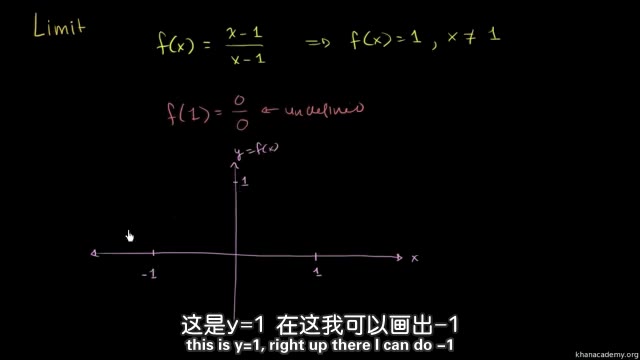 Limit
f(x) = x-1 / x-1 ⇒ f(x) = 1 , x ≠ 1
f(1) = 0 / 0 ← undefined
y = f(x)
1
x
-1
1
这是y=1 在这我可以画出-1
this is y=1, right up there I can do -1
khanacademy.org